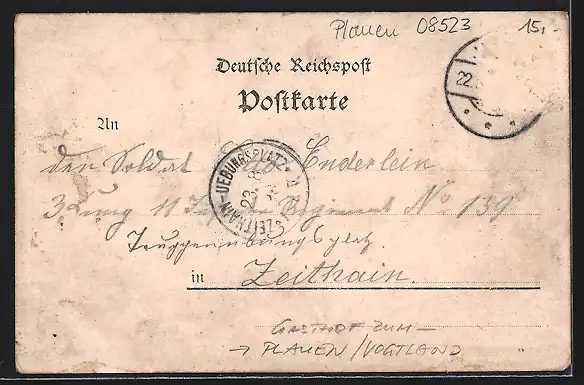 Plauen 08523 15,-
Deutsche Reichspost
Postkarte
22.
An
den Soldat Enderlein
ZEITHAIN-UEBUNGSPLATZ
23. 8
11 Regiment No 139
Truppenübungsplatz
in Zeithain.
GASTHOF ZUM —
→ PLAUEN/VOGTLAND